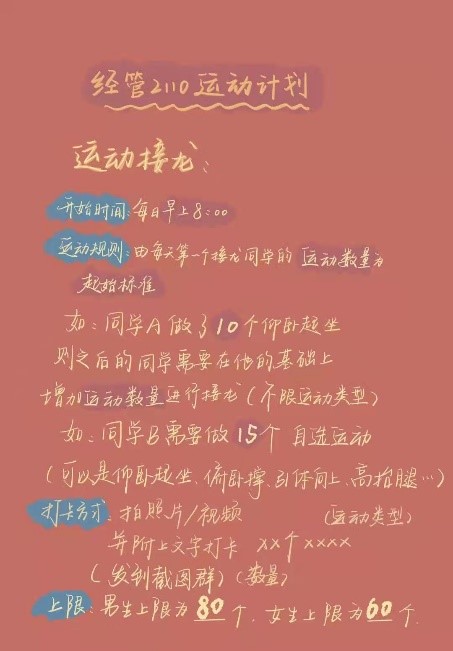 经管2110运动计划
运动接龙：
开始时间：每日早上8:00
运动规则：由每天第一个接龙同学的 运动数量为
起始标准
如：同学A做了10个仰卧起坐
则之后的同学需要在他的基础上
增加运动数量进行接龙（不限运动类型）
如：同学B需要做15个 自选运动
（可以是仰卧起坐、俯卧撑、引体向上、高抬腿…）
打卡方式：拍照片/视频 （运动类型）
并附上文字打卡 xx个xxxx
（发到截图群）（数量）
上限：男生上限为80个，女生上限为60个.